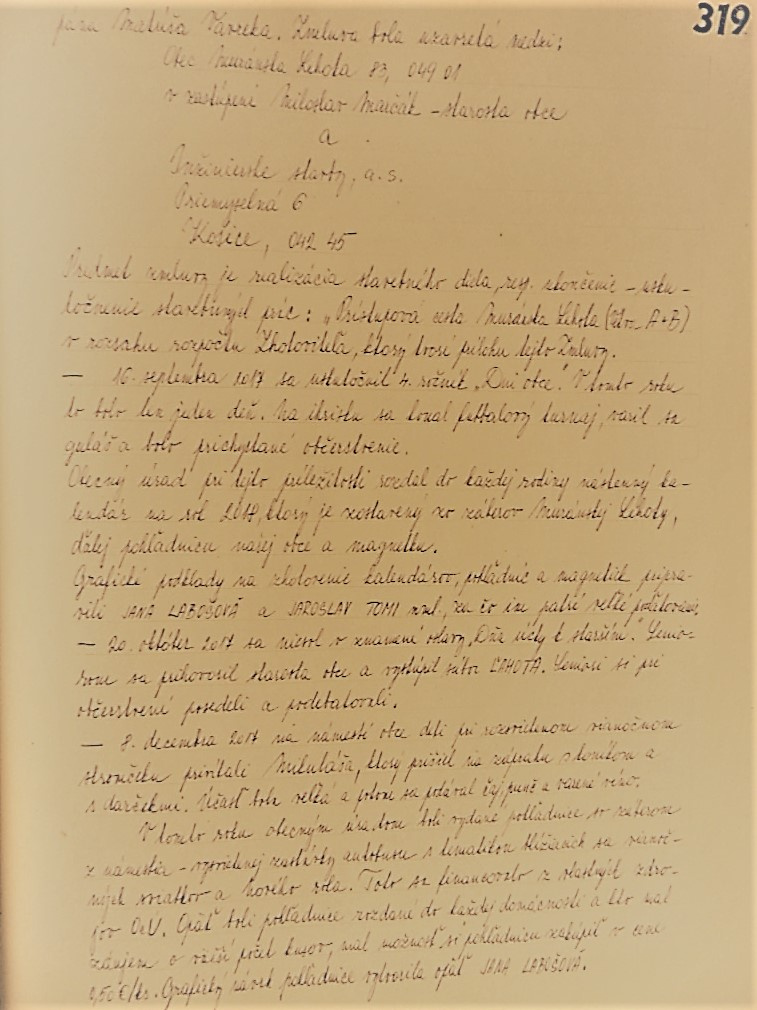 319
pána Matúša Vavreka. Zmluva bola uzavretá medzi:
Obec Muránska Lehota 83, 049 01
v zastúpení Miloslav Maičák - starosta obce
a
Inžinierske stavby, a.s.
Priemyselná 6
Košice, 042 45
Predmet zmluvy je realizácia stavebného diela, resp. ukončenie - usku-
točnenie stavebných prác: "Prístupová cesta Muránska Lehota (A+B)
v rozsahu rozpočtu Zhotoviteľa, ktorý tvorí prílohu tejto Zmluvy.
— 16. septembra 2017 sa uskutočnil 4. ročník "Dní obce". V tomto roku
to bolo len jeden deň. Na ihrisku sa konal futbalový turnaj, varil sa
guláš a bolo prichystané občerstvenie.
Obecný úrad pri tejto príležitosti rozdal do každej rodiny nástenný ka-
lendár na rok 2018, ktorý je zostavený zo záberov Muránskej Lehoty,
ďalej pohľadnicu našej obce a magnetku.
Grafické podklady na zhotovenie kalendárov, pohľadníc a magnetiek pripra-
vili JANA LABOŠOVÁ a JAROSLAV TOMI ml., za čo im patrí veľké poďakovanie.
— 20. október 2017 sa niesol v znamení oslavy "Dňa úcty k starším". Senio-
rom sa prihovoril starosta obce a vystúpil súbor LEHOTA. Seniori si pri
občerstvení posedeli a podebatovali.
— 8. decembra 2017 na námestí obce deti pri rozsvietenom vianočnom
stromčeku privítali Mikuláša, ktorý prišiel na záprahu s koníkom a
s darčekmi. Účasť bola veľká a potom sa podával čaj, punč a varené víno.
V tomto roku obecným úradom boli vydané pohľadnice so záberom
z námestia - vysvietenej zastávky autobusu s tematikou blížiacich sa vianoč-
ných sviatkov a Nového roka. Toto sa financovalo z vlastných zdro-
jov OcÚ. Opäť boli pohľadnice rozdané do každej domácnosti a kto mal
záujem o väčší počet kusov, mal možnosť si pohľadnicu zakúpiť v cene
0,50 €/ks. Grafický návrh pohľadnice vytvorila opäť JANA LABOŠOVÁ.